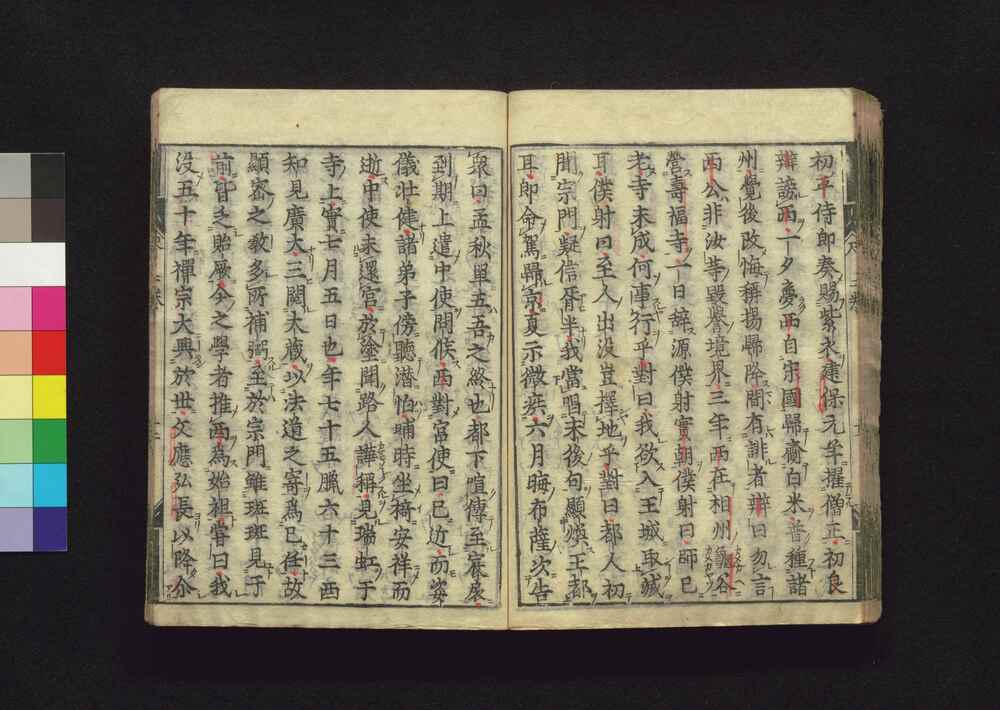 初平侍郎奏賜紫衣建保元年擢僧正初良
辯謗西一夕夢西自宋國歸齎白米普種諸
州覺後改悔稱揚歸降間有誹者辯曰勿言
西公非汝等毀譽境界三年西在相州龜谷
營壽福寺一日辭源僕射實朝僕射曰師已
老寺未成何遽行乎對曰我欲入王城取滅
耳僕射曰至人出没豈擇地乎對曰都人初
聞宗門疑信胥半我當唱末後句顯煥王都
耳即命駕歸京夏示微疾六月晦布薩次告
衆曰孟秋單五吾之終也都下喧傳至宸扆
到期上遣中使問候西對宮使曰已近而姿
儀壯健諸弟子傍聽潜怕晡時坐椅安祥而
逝中使未還宮於塗聞路人譁稱見瑞虹于
寺上實七月五日也年七十五臘六十三西
知見廣大三閲大藏以法道之寄爲己任故
顯密之教多所補弼至於宗門雖斑斑見于
前皆之貽厥今之學者推西爲始祖嘗曰我
没五十年禪宗大興於世文應弘長以降尒